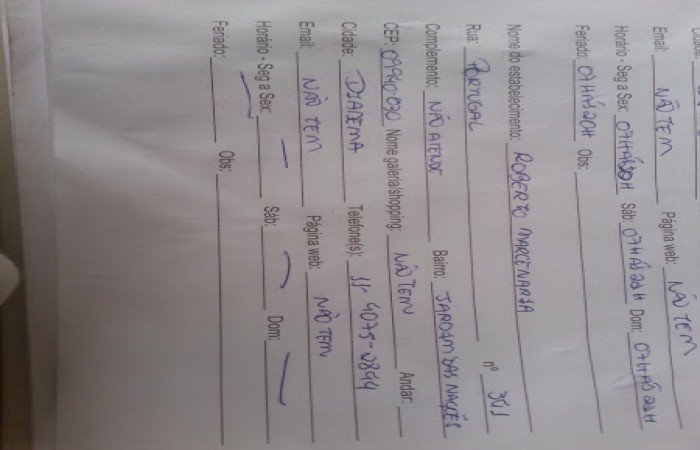 Email: NÃO TEM Página web: NÃO TEM
Horário - Seg a Sex: 07H ÁS 20H Sáb: 07H ÁS 22H Dom: 07H ÁS 22H
Feriado: 07H ÁS 20H Obs:
Nome do estabelecimento: ROBERTO MARCENARIA
Rua: PORTUGAL nº
Complemento: NÃO ATENDE Bairro: JARDIM DAS NAÇÕES
CEP: 09940-030 Nome galeria/shopping: NÃO TEM Andar:
Cidade: DIADEMA Telefone(s): 11-4075-2844
Email: NÃO TEM Página web: NÃO TEM
Horário - Seg a Sex: Sáb: Dom:
Feriado: Obs: